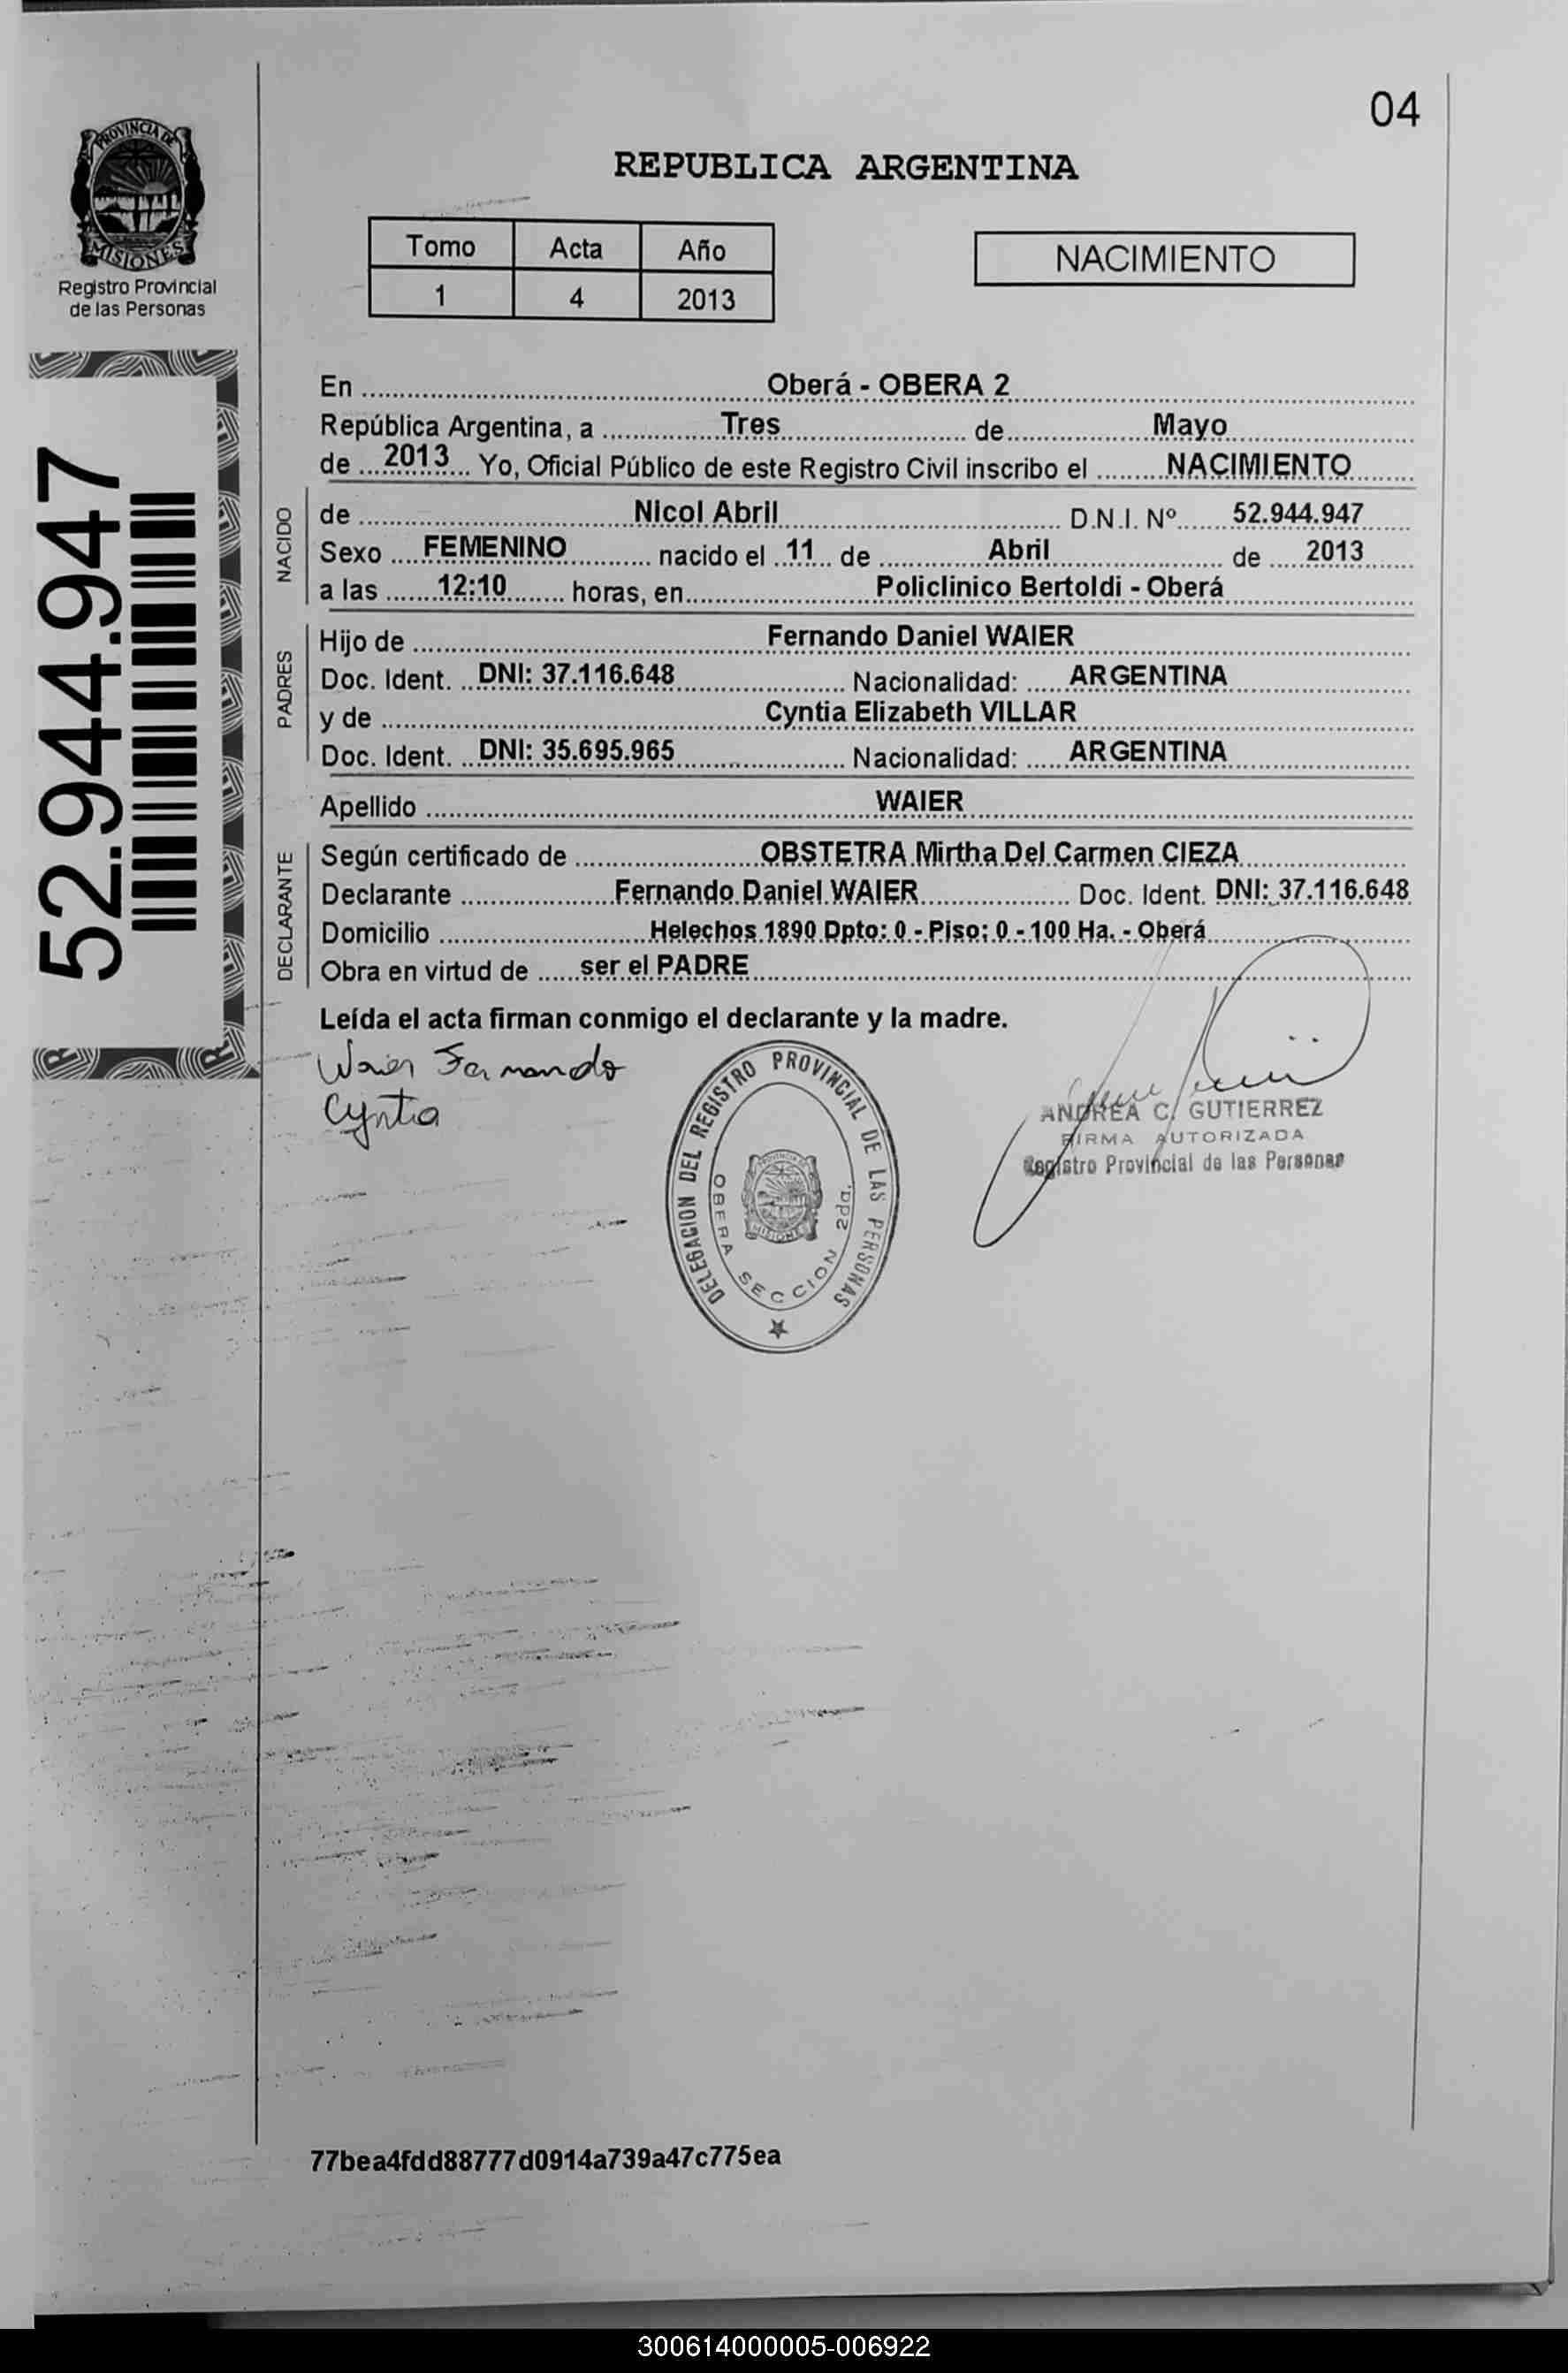 04
PROVINCIA DE
MISIONES
Registro Provincial
de las Personas
REPUBLICA ARGENTINA
Tomo Acta Año
1 4 2013
NACIMIENTO
52.944.947
En Oberá - OBERA 2
República Argentina, a Tres de Mayo
de 2013 Yo, Oficial Público de este Registro Civil inscribo el NACIMIENTO
NACIDO
de Nicol Abril D.N.I. Nº 52.944.947
Sexo FEMENINO nacido el 11 de Abril de 2013
a las 12:10 horas, en Policlinico Bertoldi - Oberá
PADRES
Hijo de Fernando Daniel WAIER
Doc. Ident. DNI: 37.116.648 Nacionalidad: ARGENTINA
y de Cyntia Elizabeth VILLAR
Doc. Ident. DNI: 35.695.965 Nacionalidad: ARGENTINA
Apellido WAIER
DECLARANTE
Según certificado de OBSTETRA Mirtha Del Carmen CIEZA
Declarante Fernando Daniel WAIER Doc. Ident. DNI: 37.116.648
Domicilio Helechos 1890 Dpto: 0 - Piso: 0 - 100 Ha. - Oberá
Obra en virtud de ser el PADRE
Leída el acta firman conmigo el declarante y la madre.
Waier Fernando
Cyntia
DELEGACION DEL REGISTRO PROVINCIAL DE LAS PERSONAS
OBERA SECCION 2da.
PROVINCIA DE
MISIONES
ANDREA C. GUTIERREZ
FIRMA AUTORIZADA
Registro Provincial de las Personas
77bea4fdd88777d0914a739a47c775ea
300614000005-006922